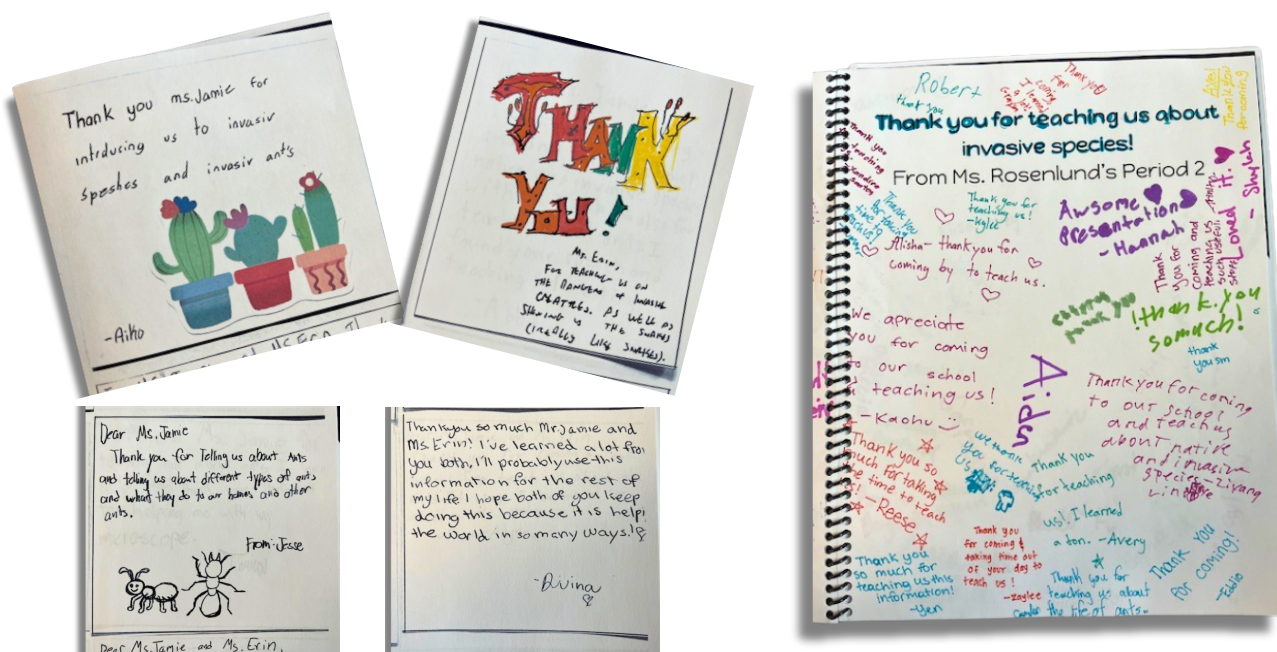 Thank you ms.Jamie for
intrducing us to invasiv
speshes and invasiv ant's
-Aiko
THANK
YOU!
Ms. Erin,
FOR TEACHING US ON
THE DANGERS OF INVASIVE
CREATURES. AS WELL AS
SHOWING US THE SWARMS
(REALLY LIKE SWARMS).
Dear Ms. Jamie
Thank you for Telling us about Ants
and telling us about different types of ants
and what they do to our homes and other
ants.
From-Jesse
Dear Ms. Jamie and Ms. Erin,
Thankyou so much Mr. Jamie and
Ms. Erin! I've learned a lot from
you both, I'll probably use this
information for the rest of
my life I hope both of you keep
doing this because it is helpi
the world in so many ways!
-Divina
Robert
thank you
Thank you!
Thank you
for coming
Thank you for teaching us about
invasive species!
From Ms. Rosenlund's Period 2
Thank you
teaching
Thank you
for taking
time to
teach us!
Thank you for
teaching us!
-Kylee
Alisha- thank you for
coming by to teach us.
Awsome
Presentation
-Hannah
Thank
you for
coming and
teaching us
such useful
Loved it.
- Shylah
We apreciate
you for coming
to our school
& teaching us!
-Kaohu
thank you
!thank you
somuch!
thank
you sm
Aiden
Thank you for coming
to our school
and teaching
about native
and invasive
species-
Thank you so
much for taking
the time to teach
us! -Reese
you for teaching
us
Thank you
for teaching
us! I learned
a ton. -Avery
Thank you
for coming &
taking time out
of your day to
teach us!
-zaylee
Thank you
so much for
teaching us this
information!
-Yen
Thank you for
teaching us about
the life of ants.
Thank you
for coming!